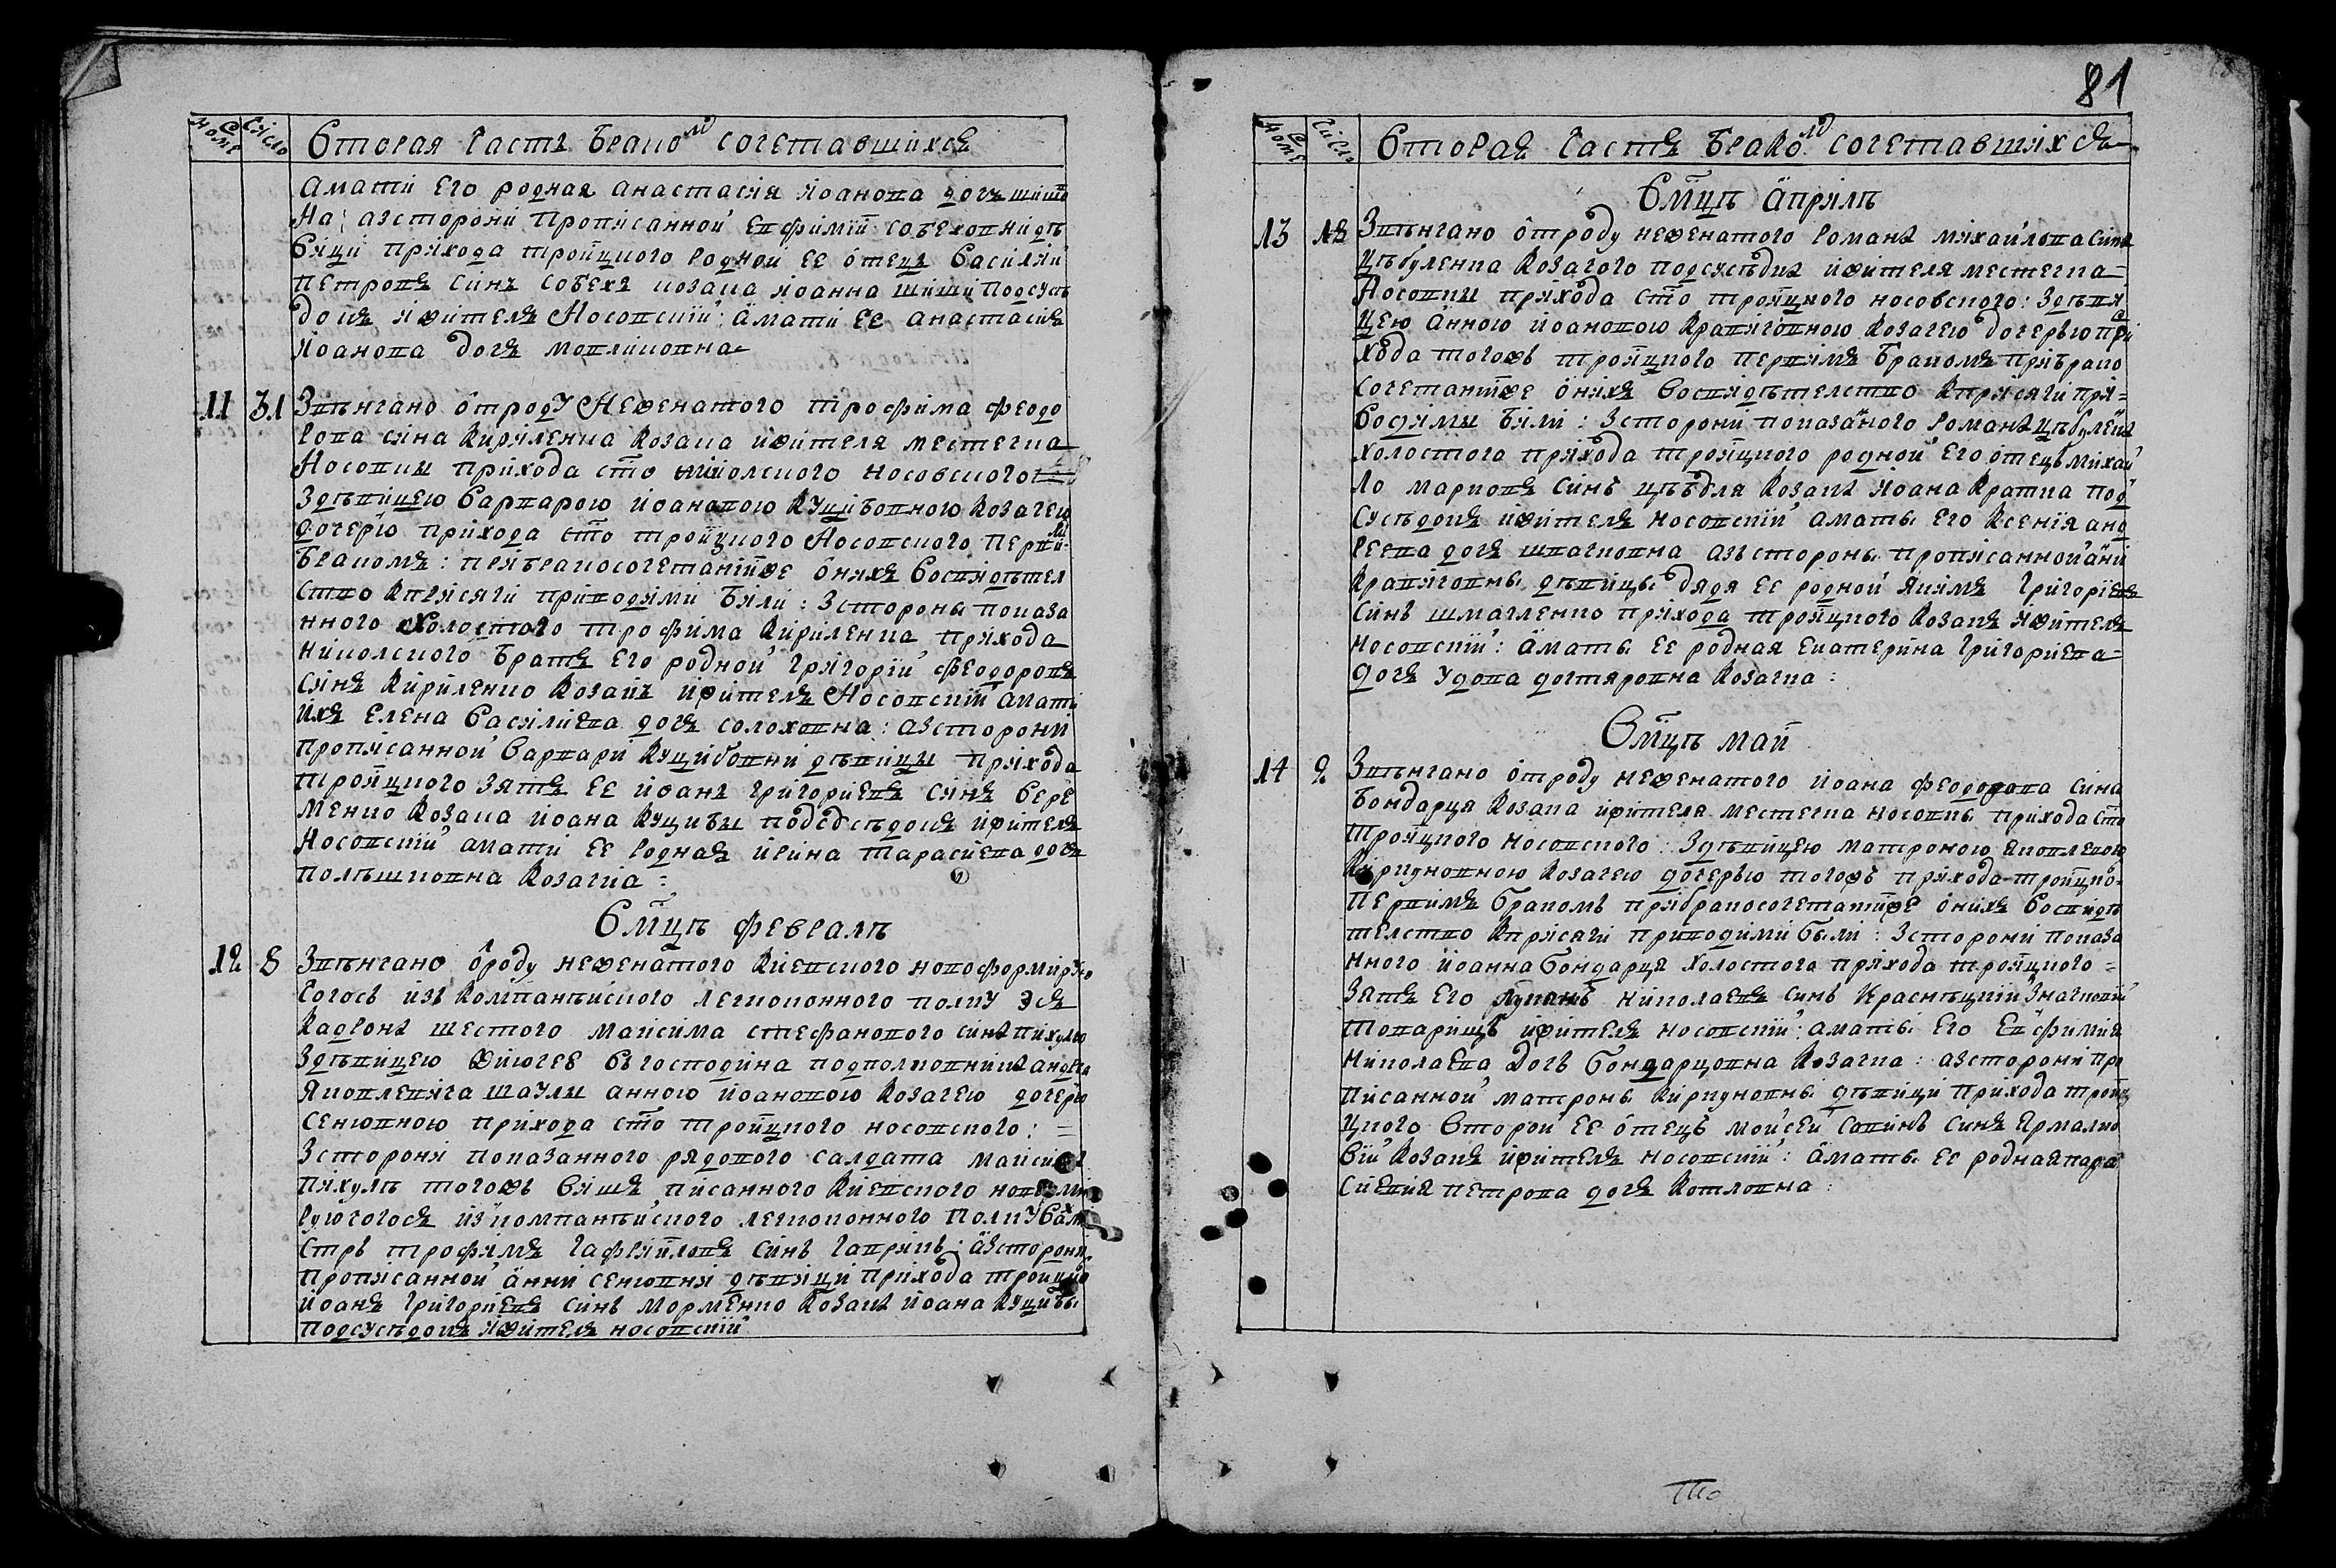 номе Число Вторая часть бракомъ сочетавшихся
аматй его родная анастасия иоанова дочъ шишо
на: азсторони прописанной евфимии соβеховни дѣ
вици прихода тройцкого родной ее отецъ василий
петровъ синъ собехъ козака иоанна шиши подсусѣ
докъ ижителъ носовский: амати ее анастасия
иоанова дочъ мовликовна
11 31 Звѣнчано отроду неженатого трофима феодо
рова сина кириленка козака ижителя местечка
Носовки прихода сто николского носовского
здѣвицею варварою иоановою куцибовною козачею
дочерю прихода сто тройцкого носовского первим
бракомъ: прибракосочетанийже онихъ восвидѣтел
ство кприсяги приводими били: Зсторони показа
нного холостого трофима кириленка прихода
николского братъ его родной григорий феодоровъ
синъ кириленко козакъ ижителъ носовский амати
ихъ елена василиева дочъ солоховна: азсторони
прописанной варвари куцибовни дѣвицы прихода
тройцкого зятъ ее иоанъ григориевъ синъ бере
менко козака иоана куцибы подсосѣдокъ ижителъ
носовский амати ее родная ирина тарасиева дочъ
полѣшковна козачка:
Вмцѣ февралѣ
12 8 Звѣнчано ороду неженатого киевского новоформиру
согось изъ компанѣйского легкоконного полку эс
кадрона шестого максима стефанового сина пихулю
здѣвицею жиючею въгосподина подполковника андреа
яковлевича шаулы анною иоановою козачею дочерю
сенювною прихода сто тройцкого носовского:
Зсторони показанного рядового салдата максима
пихулѣ тогожъ вишъ писанного киевского новоформи
руючогося изкомпанѣйского легкоконного полку вахми
стръ трофимъ гавриловъ синъ гапричъ: азсторони
прописанной анни сенювни дѣвици прихода тройцко
иоанъ григориевъ синъ морменко козака иоана куцибы
подсусѣдокъ ижителъ носовский
81
номе Число Вторая частъ бракомъ сочетавшихся
Вмцѣ априлѣ
13 18 Звѣнчано отроду неженатого романа михайлова сина
цѣбуленка козачого подсусѣдка ижителя местечка
Носовки прихода сто тройцкого носовского: здѣви
цею анною иоановою кравчовною козачею дочерью при
хода тогожъ тройцкого первимъ бракомъ прибрако
сочетаниже онихъ восвидѣтелство кприсяги при
водимы били: Зсторони показаного романа цѣбуленка
холостого прихода тройцкого родной его отецъ михай
ло марковъ синъ цѣбуля козака иоана кравца под
сусѣдокъ ижителъ носовский аматъ его ксения анд
реева дочъ шпачковна азстороны прописанной ани
кравчовны дѣвицы дядя ее родной якимъ григориевъ
синъ шмагленко прихода тройцкого козакъ ижителъ
носовский: аматъ ее родная екатерина григориева
дочъ удова дегтяровна козачка:
Вмцѣ май
14 2 Звѣнчано отроду неженатого иоана феодорова сина
бондарця козака ижителя местечка носовки прихода сто
тройцкого носовского: здѣвицею матроною яковлевою
кирпуновною козачею дочерью тогожъ прихода тройцко
первимъ бракомъ прибракосочетанийже онихъ восвидѣ
телство кприсяги приводими были: Зсторони показа
нного иоанна бондарця холостого прихода тройцкого
зятъ его николаевъ синъ красныцкий значковий
товарищъ ижителъ носовский: аматъ его евфимия
николаева дочъ бондарцовна козачка: азсторони про
писанной матроны кирпуновны дѣвици прихода трой
цкого второй ее отецъ мойсей савинъ синъ ермалко
вий козакъ ижителъ носовский: аматъ ее родная пара
скевия петрова дочъ котловна: